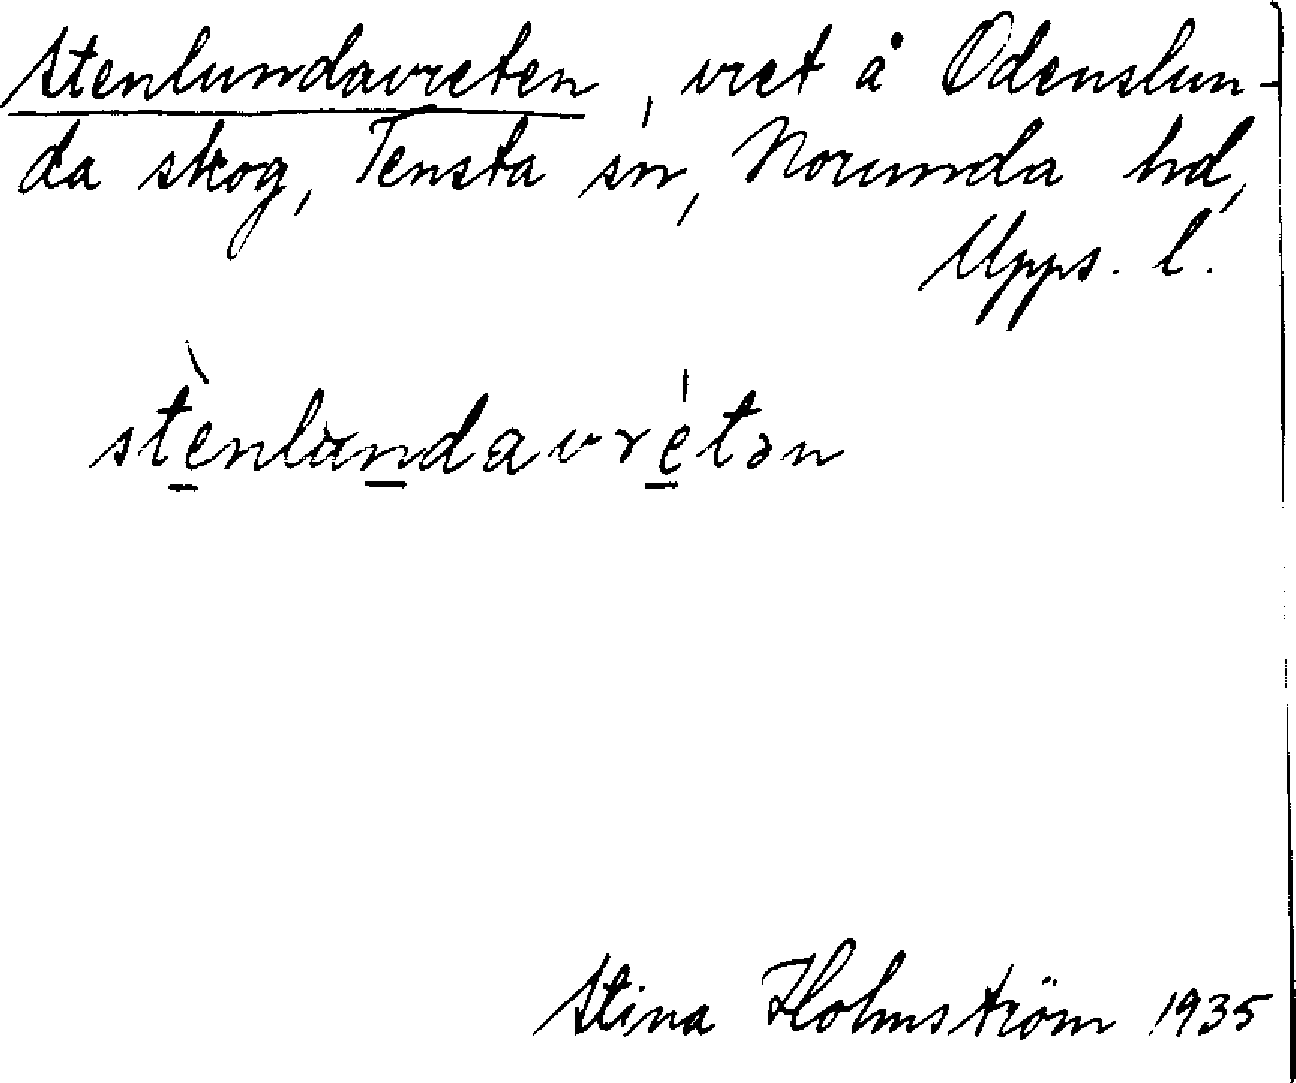 Stenlundavreten, vret å Odenslun-
da skog, Tensta sn, Norunda hd,
Upps. l.
stènlùndavrétən
Stina Holmström 1935